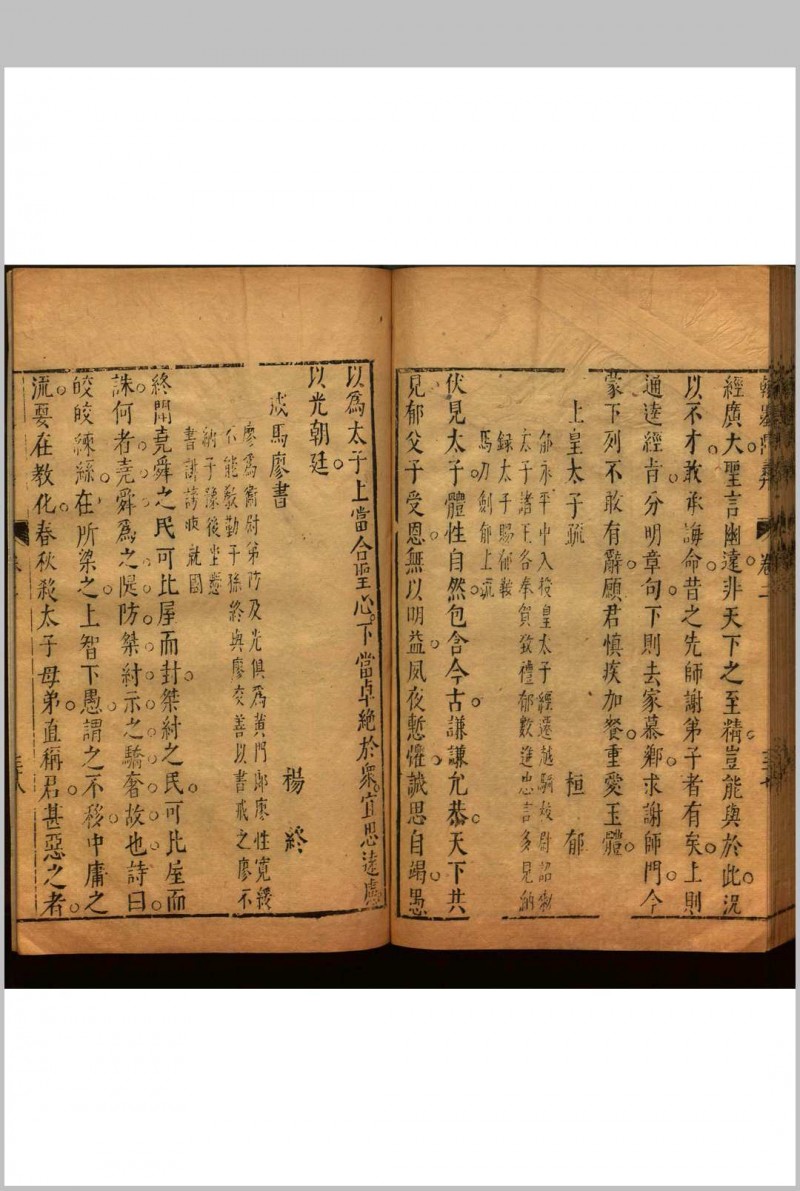 經廣大聖言幽遠非天下之至精豈能與於此況
以不才敢承誨命昔之先師謝弟子者有矣上則
通達經旨分明章句下則去家慕鄉求謝師門今
蒙下列不敢有辭願君慎疾加餐重愛玉體
上皇太子疏 桓郁
郁永平中入授皇太子經遷越騎校尉詔勑
太子諸王各奉賀致禮郁數進忠言多見納
録太子賜郁鞍
馬刀劍郁上疏
伏見太子體性自然包含今古謙謙允恭天下共
見郁父子受恩無以明益夙夜慙懼誠思自竭愚
以爲太子上當合聖心下當卓絶於衆宜思遠慮
以光朝廷
戒馬廖書 楊終
廖爲衛尉弟防及光俱爲黃門郎廖性寬緩
不能敎勤子孫終與廖交善以書戒之廖不
納子豫後坐懸
書誹謗廖就國
終聞堯舜之民可比屋而封桀紂之民可比屋而
誅何者堯舜爲之隄防桀紂示之驕奢故也詩曰
皎皎練絲在所染之上智下愚謂之不移中庸之
流要在教化春秋殺太子母弟直稱君甚惡之者